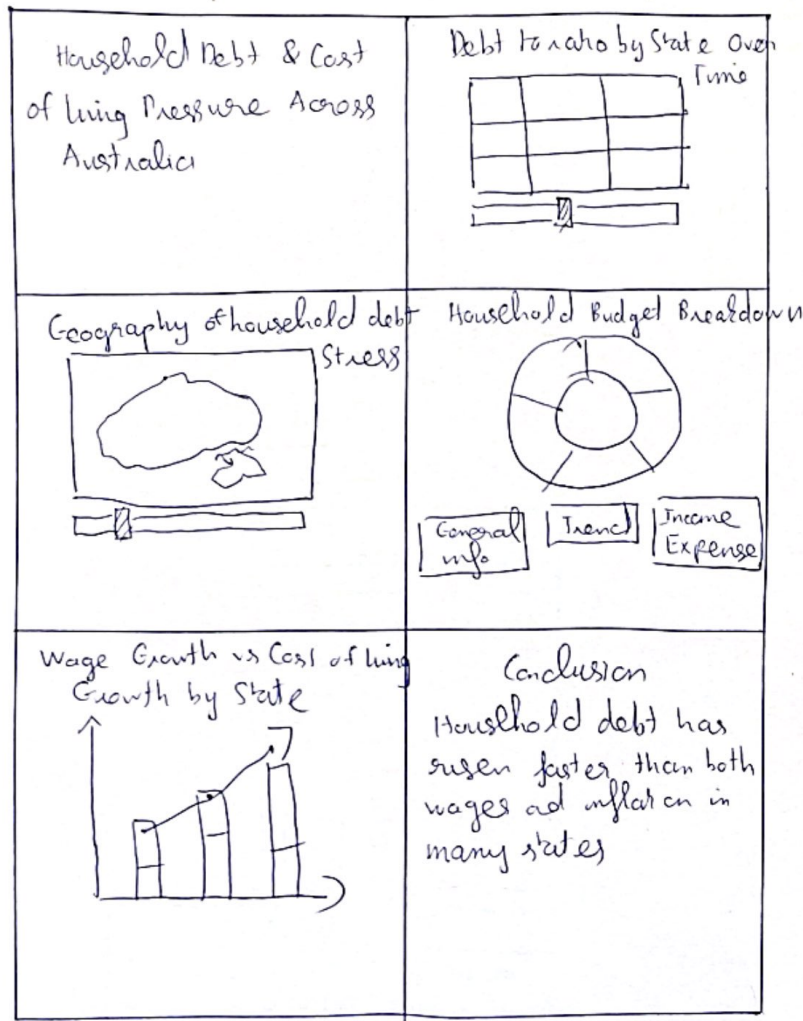 Household Debt & Cost
of living Pressure Across
Australia
Debt to ratio by State Over
Time
Geography of household debt
Stress
Household Budget Breakdown
General
info
Trend
Income
Expense
Wage Growth vs Cost of living
Growth by State
Conclusion
Household debt has
risen faster than both
wages ad inflation in
many states